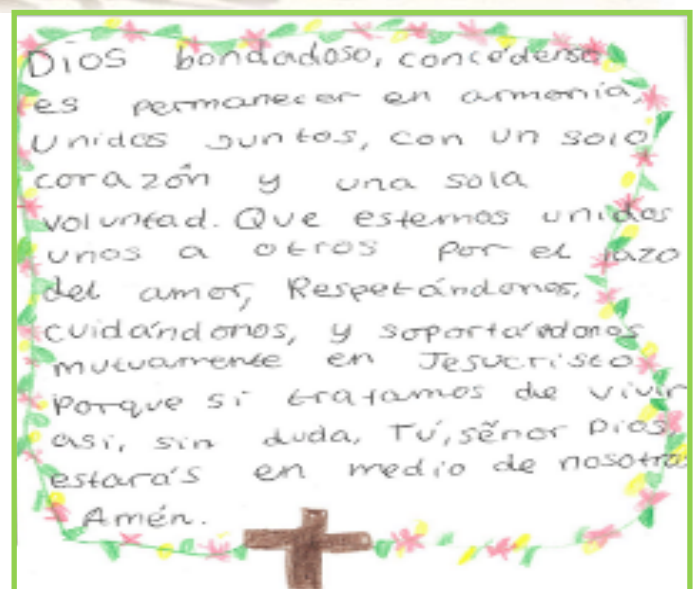 Dios bondadoso, concédense
es permanecer en armonía,
Unidos Juntos, con un solo
corazón y una sola
voluntad. Que estemos unidos
unos a otros por el lazo
del amor, Respetándonos,
cuidándonos, y soportándonos
mutuamente en Jesucristo
Porque si tratamos de vivir
asi, sin duda, Tú, séñor Dios,
estarás en medio de nosotros
Amén.